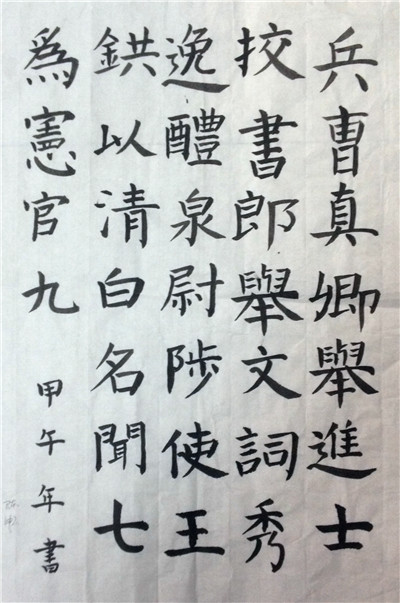 兵曹真卿舉進士
挍書郎舉文詞秀
逸醴泉尉陟使王
鉷以清白名聞七
為憲官九
甲午年書